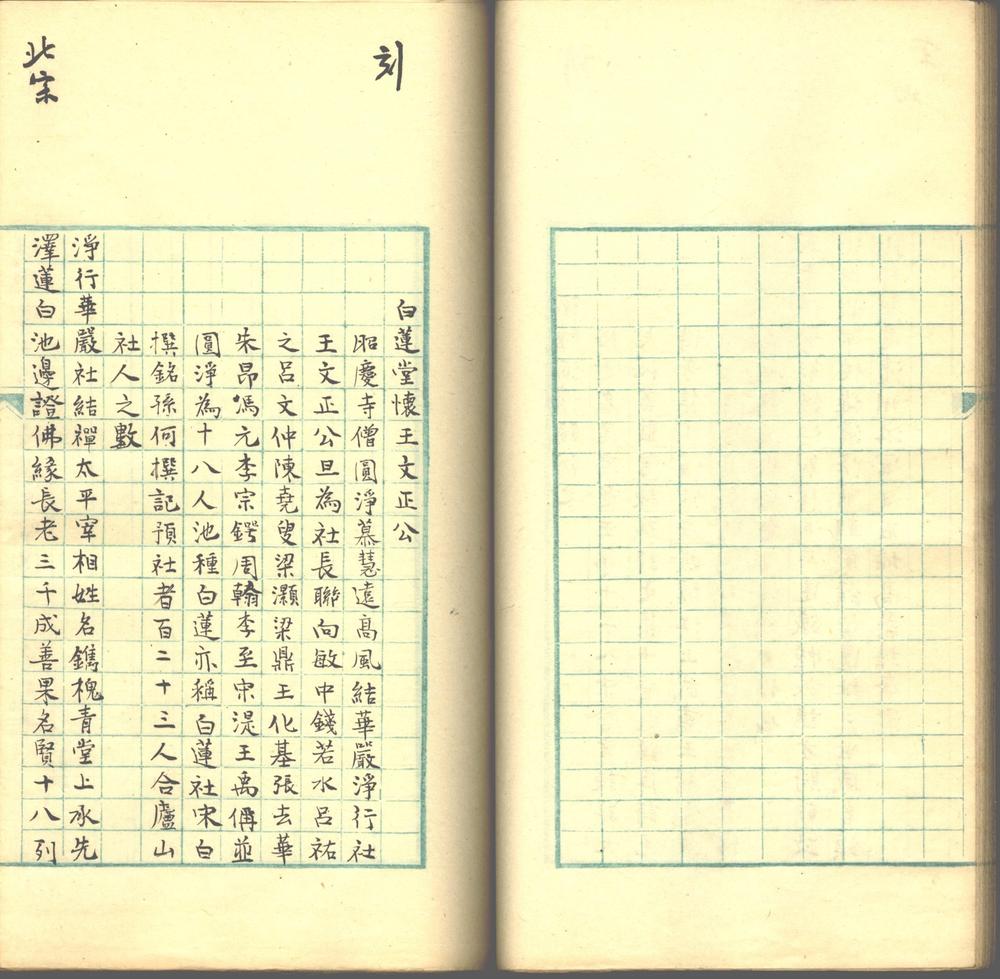 刻
北宗
白蓮堂懷王文正公
昭慶寺僧圓淨慕慧遠高風結華嚴淨行社
王文正公旦為社長聯向敏中錢若水呂祐
之呂文仲陳堯叟梁灝梁鼎王化基張去華
朱昂馮元李宗鍔周翰李至宋湜王禹偁並
圓淨為十八人池種白蓮亦稱白蓮社宋白
撰銘孫何撰記預社者百二十三人合廬山
社人之數
淨行華嚴社結禪太平宰相姓名鐫槐青堂上承先
澤蓮白池邊證佛緣長老三千成善果名賢十八列